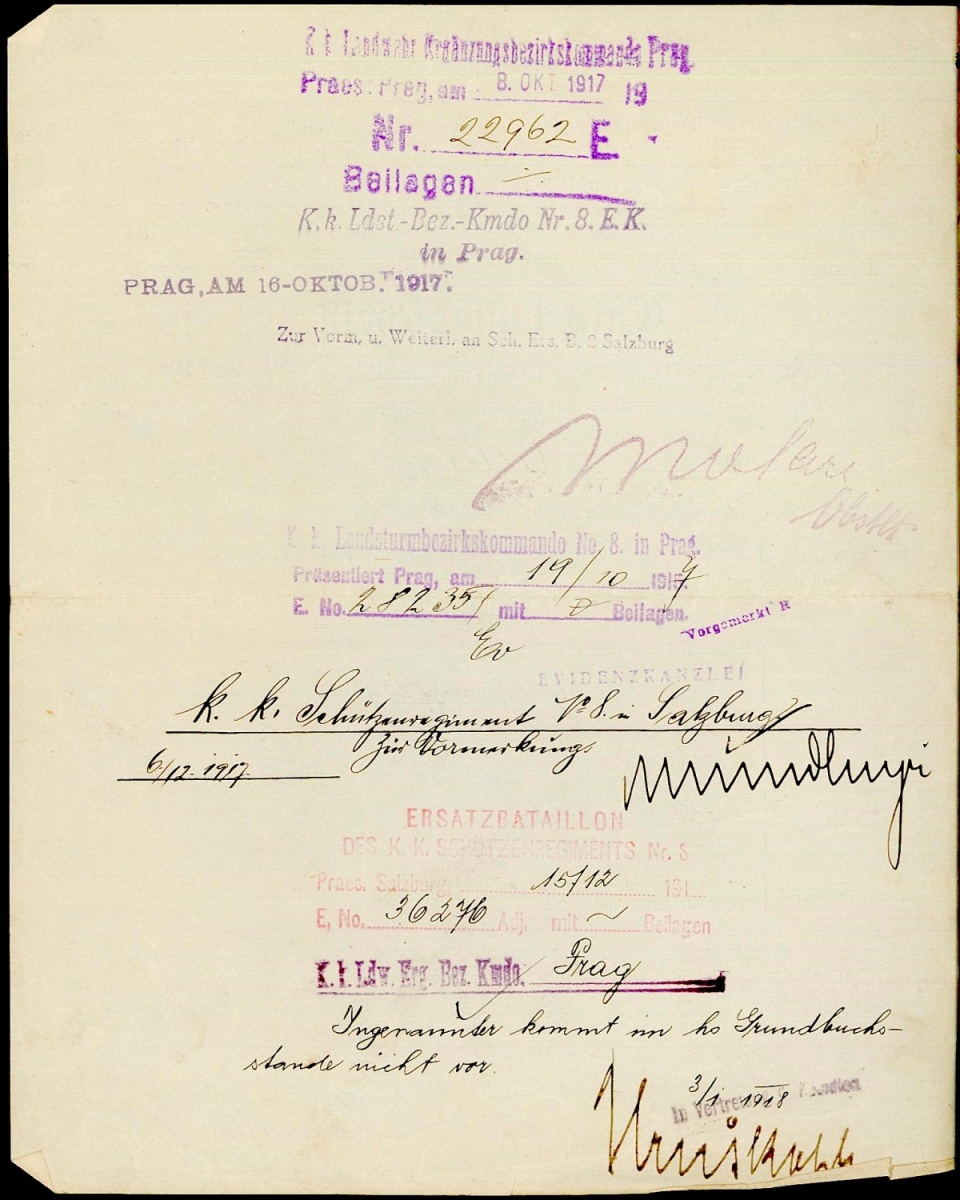 K. k. Landwehr Ergänzungsbezirkskommando Prag.
Praes: Prag, am 8. OKT. 1917 19
Nr. 22962 E
Beilagen
K. k. Ldst.-Bez.-Kmdo Nr. 8. E. K.
in Prag.
PRAG, AM 16-OKTOB. 1917.
Zur Vorm. u. Weiterl. an Sch. Ers. B. 8 Salzburg
Obstlt
K. k. Landsturmbezirkskommando No. 8. in Prag.
Präsentiert Prag, am 19/10 1917
E. No. 28235 mit Beilagen.
Vorgemerkt R
Ev
EVIDENZKANZLEI
k. k. Schützenregiment No 8. in Salzburg
zur Vormerkung
6/12. 1917.
ERSATZBATAILLON
DES K. K. SCHÜTZENREGIMENTS Nr. 8
Praes. Salzburg, 15/12 191
E, No. 36276 Adj. mit ~ Beilagen
K. k. Ldw. Erg. Bez. Kmdo. Prag
Ingenannter kommt im hs Grundbuchs-
stande nicht vor.
3/1 1918
In Vertretung